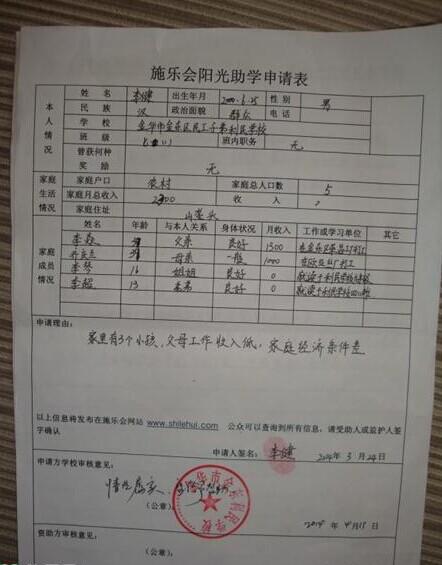 施乐会阳光助学申请表
本人情况 姓名 李健 出生年月 2000.6.25 性别 男
民族 汉 政治面貌 群众 电话
学校 金华市金东区民工子弟利民学校
班级 班内职务 无
曾获何种奖励 无
家庭生活情况 家庭户口 农村 家庭总人口数 5
家庭月总收入 2300 收入
家庭住址
家庭成员情况 姓名 年龄 与本人关系 身体状况 月收入 工作或学习单位 其它
李 父亲 良好 1300
母亲 一般 1000
李琴 16 姐姐 良好 0 就读于利民学校
李超 13 良好 0 就读于利民学校
申请理由:
家里有3个小孩,父母工作收入低,家庭经济条件差
以上信息将发布在施乐会网站 www.shilehui.com 公众可以查询到所有信息,请受助人或监护人签
字确认
申请人签名: 李健 2014年3月24日
申请方学校审核意见:
情况属实
(公章)
资助方审核意见:
(公章)